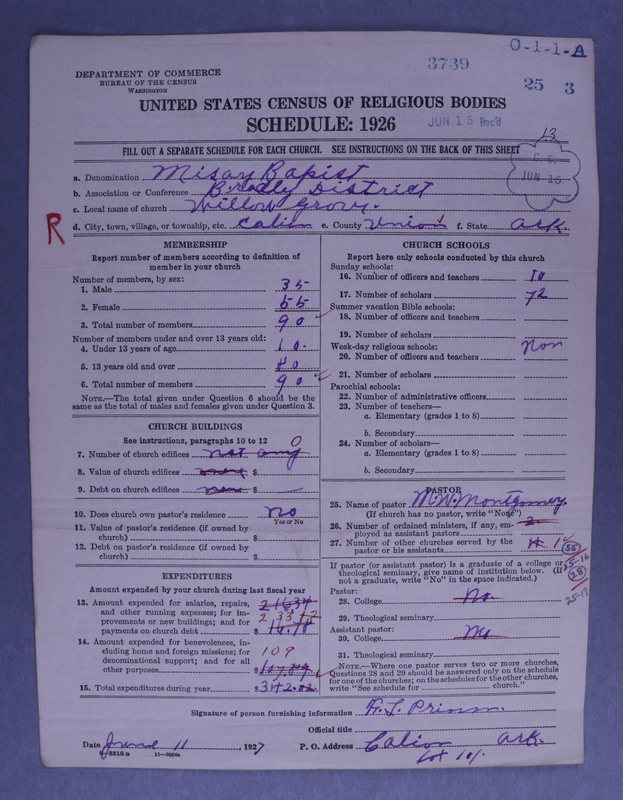 O-1-1-A
3739
25 3
DEPARTMENT OF COMMERCE
BUREAU OF THE CENSUS
WASHINGTON
UNITED STATES CENSUS OF RELIGIOUS BODIES
SCHEDULE: 1926
JUN 15 Rec'd
13
FILL OUT A SEPARATE SCHEDULE FOR EACH CHURCH. SEE INSTRUCTIONS ON THE BACK OF THIS SHEET
JUN 16
a. Denomination Misary Bapist
b. Association or Conference District
c. Local name of church Willow Grove.
R
d. City, town, village, or township, etc. Calion e. County Union f. State Ark.
MEMBERSHIP
Report number of members according to definition of member in your church
Number of members, by sex:
1. Male 35
2. Female 55
3. Total number of members 90
Number of members under and over 13 years old:
4. Under 13 years of age 10.
5. 13 years old and over 80
6. Total number of members 90
NOTE.—The total given under Question 6 should be the same as the total of males and females given under Question 3.
CHURCH BUILDINGS
See instructions, paragraphs 10 to 12 0
7. Number of church edifices not any
8. Value of church edifices $
9. Debt on church edifices $
10. Does church own pastor's residence? no
Yes or No
11. Value of pastor's residence (if owned by church) $
12. Debt on pastor's residence (if owned by church) $
EXPENDITURES
Amount expended by your church during last fiscal year
13. Amount expended for salaries, repairs, and other running expenses; for improvements or new buildings; and for payments on church debt $
14. Amount expended for benevolences, including home and foreign missions; for denominational support; and for all other purposes 109 $
15. Total expenditures during year $342.
CHURCH SCHOOLS
Report here only schools conducted by this church
Sunday schools:
16. Number of officers and teachers 10
17. Number of scholars 72
Summer vacation Bible schools:
18. Number of officers and teachers
19. Number of scholars
Week-day religious schools: Non
20. Number of officers and teachers
21. Number of scholars
Parochial schools:
22. Number of administrative officers
23. Number of teachers—
a. Elementary (grades 1 to 8)
b. Secondary
24. Number of scholars—
a. Elementary (grades 1 to 8)
b. Secondary
PASTOR
25. Name of pastor M.W. Montgomery.
(If church has no pastor, write "None")
26. Number of ordained ministers, if any, employed as assistant pastors
27. Number of other churches served by the pastor or his assistants 1
If pastor (or assistant pastor) is a graduate of a college or theological seminary, give name of institution below. (If not a graduate, write "No" in the space indicated.)
Pastor:
28. College No.
29. Theological seminary
Assistant pastor:
30. College
31. Theological seminary
NOTE.—Where one pastor serves two or more churches, Questions 28 and 29 should be answered only on the schedule for one of the churches; on the schedules for the other churches, write "See schedule for church."
Signature of person furnishing information
Official title
Date June 11, 1927 P. O. Address Calion Ark.
11—9824a